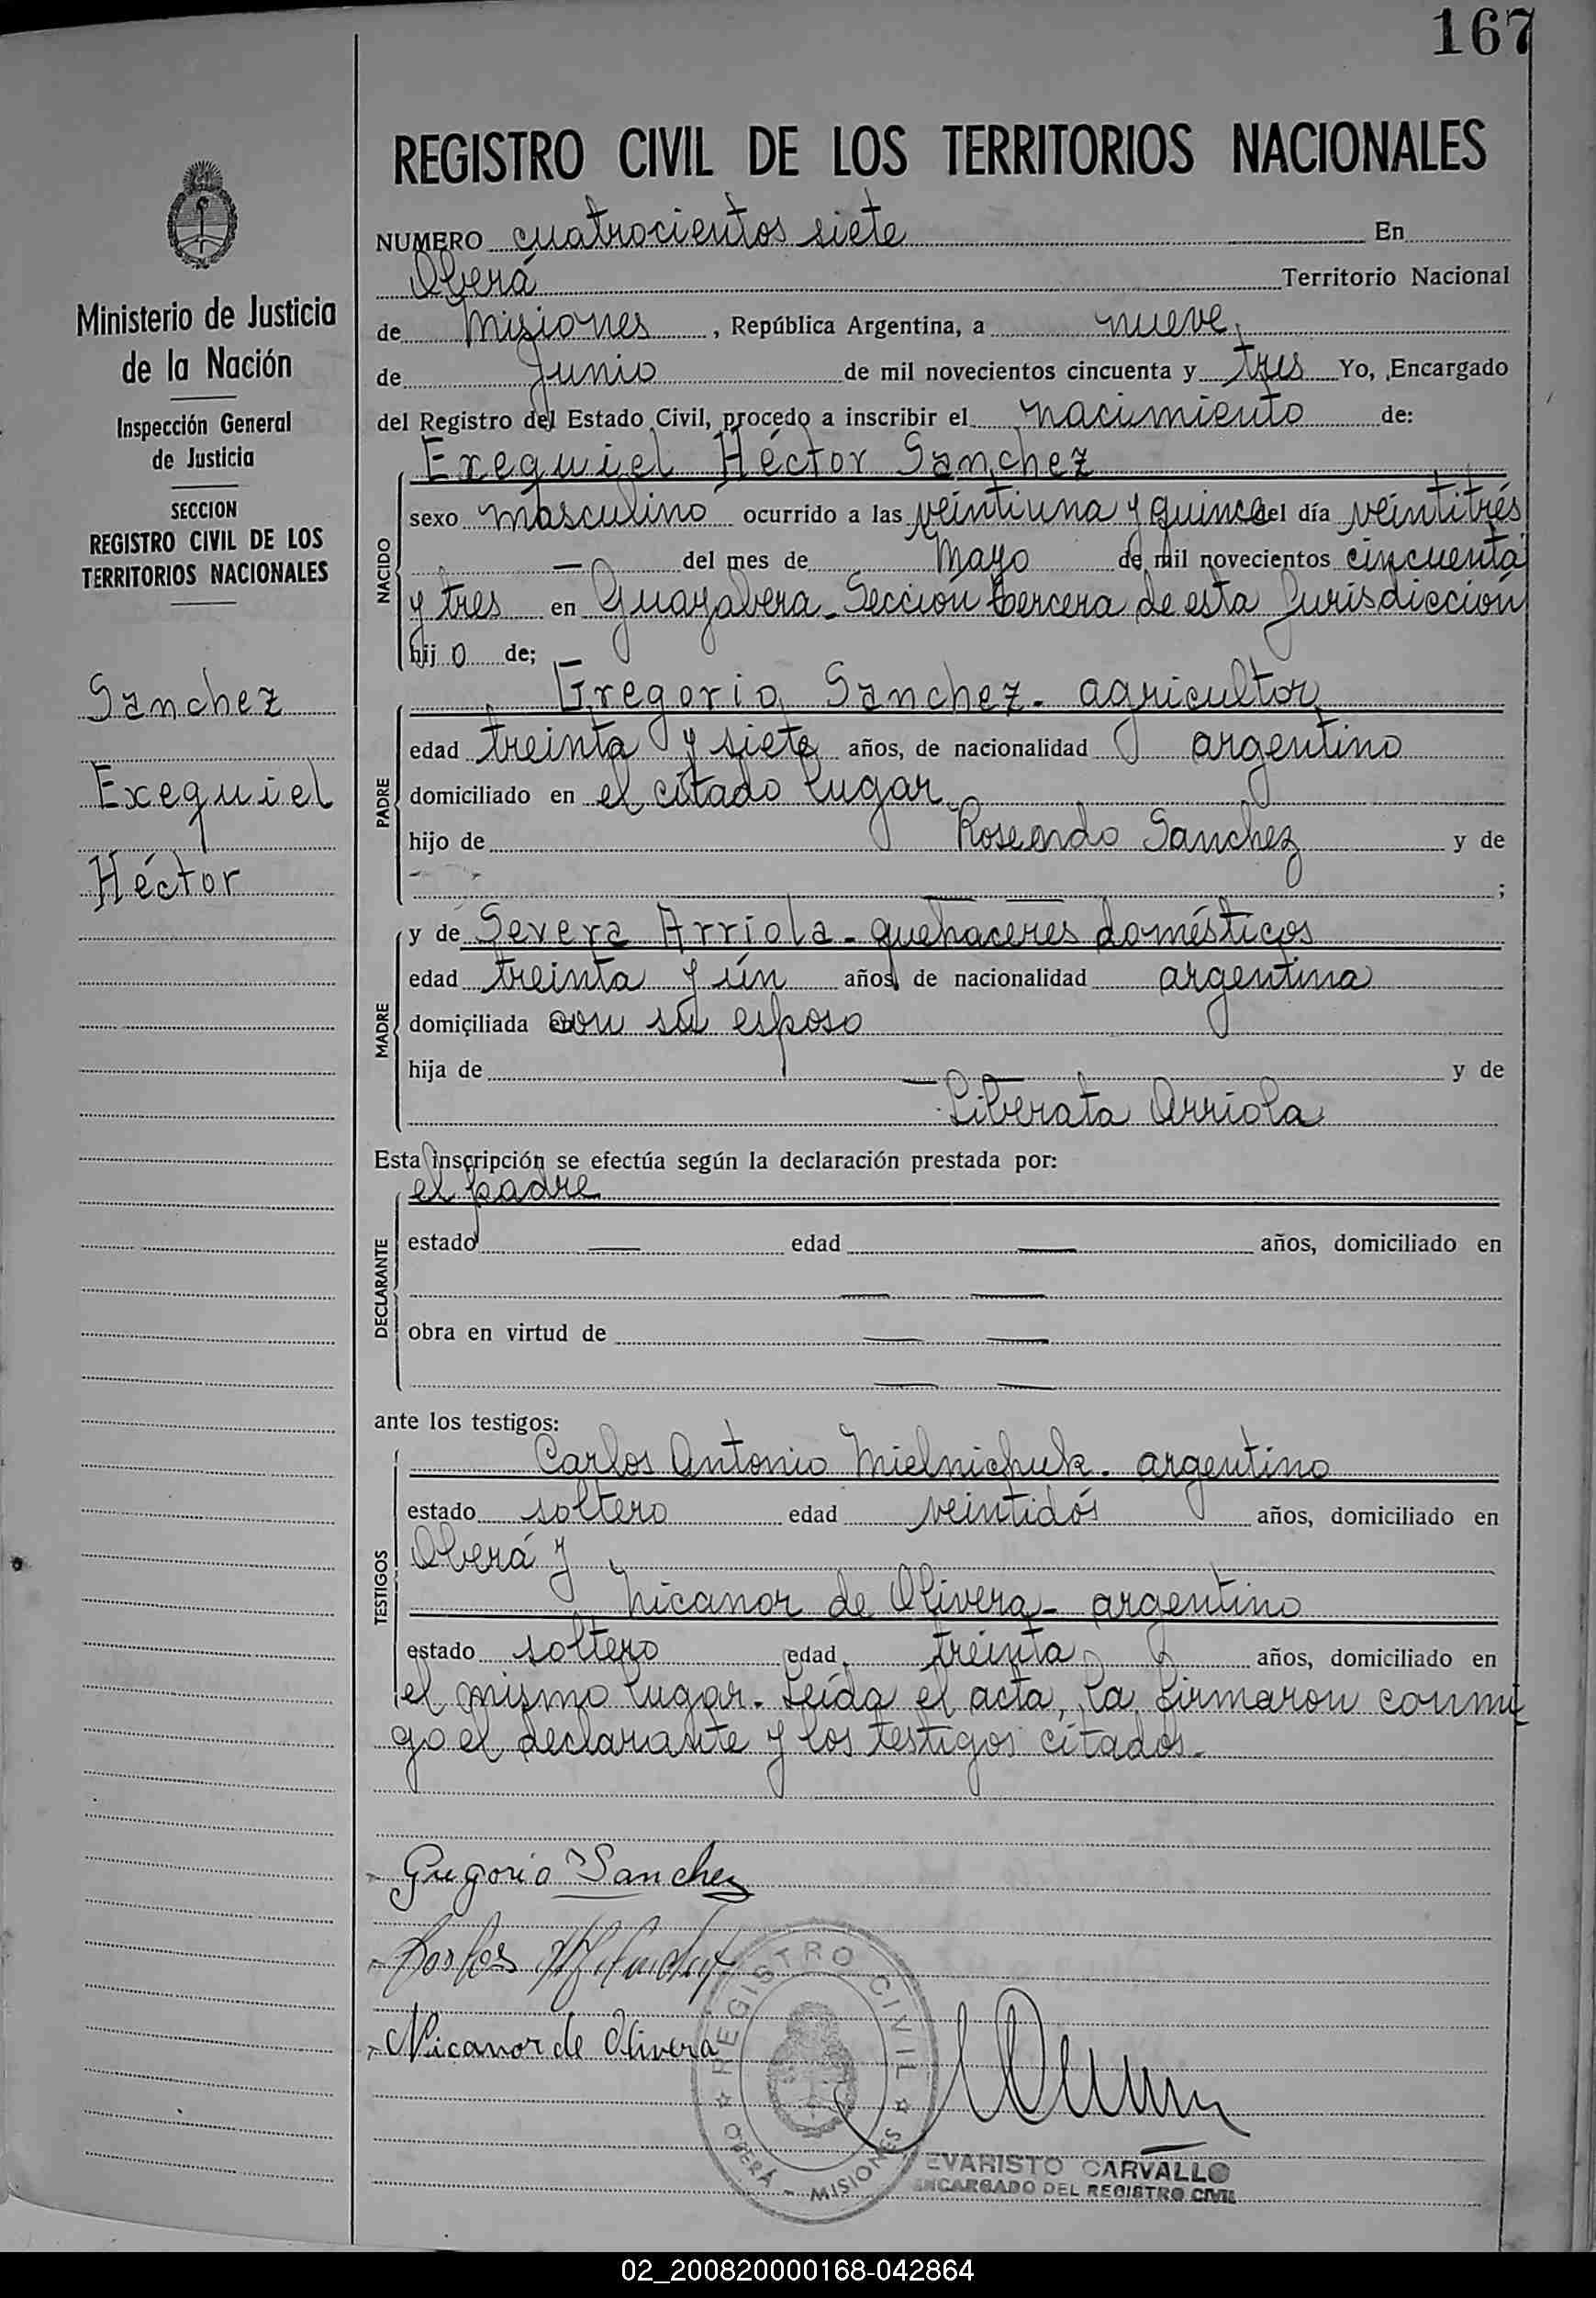 167
REGISTRO CIVIL DE LOS TERRITORIOS NACIONALES
Ministerio de Justicia
de la Nación
Inspección General
de Justicia
SECCION
REGISTRO CIVIL DE LOS
TERRITORIOS NACIONALES
Sanchez
Exequiel
Héctor
NUMERO cuatrocientos siete En
Oberá Territorio Nacional
de Misiones, República Argentina, a nueve
de Junio de mil novecientos cincuenta y tres Yo, Encargado
del Registro del Estado Civil, procedo a inscribir el nacimiento de:
Exequiel Héctor Sanchez
NACIDO
sexo masculino ocurrido a las veintiuna y quince del día veintitrés
— del mes de mayo de mil novecientos cincuenta
y tres en Guayabera - Seccion tercera de esta Jurisdiccion
hijo de;
PADRE
Gregorio Sanchez - agricultor
edad treinta y siete años, de nacionalidad argentino
domiciliado en el citado lugar
hijo de Rosendo Sanchez y de
— — ;
MADRE
y de Severa Arriola - quehaceres domésticos
edad treinta y ún años, de nacionalidad argentina
domiciliada con su esposo
hija de — — y de
Liberata Arriola
Esta inscripción se efectúa según la declaración prestada por:
DECLARANTE
el padre
estado — edad — años, domiciliado en
— —
obra en virtud de — —
— —
ante los testigos:
TESTIGOS
Carlos Antonio Mielnichuk - argentino
estado soltero edad veintidós años, domiciliado en
Oberá y
Nicanor de Olivera - argentino
estado soltero edad treinta años, domiciliado en
el mismo lugar. Leída el acta, la firmaron conmi
go el declarante y los testigos citados.
Gregorio Sanchez
Carlos
Nicanor de Olivera
REGISTRO CIVIL
OBERÁ - MISIONES
EVARISTO CARVALLO
ENCARGADO DEL REGISTRO CIVIL
02_200820000168-042864